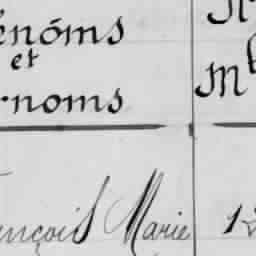 énoms
et
rnoms
ançois Marie 12